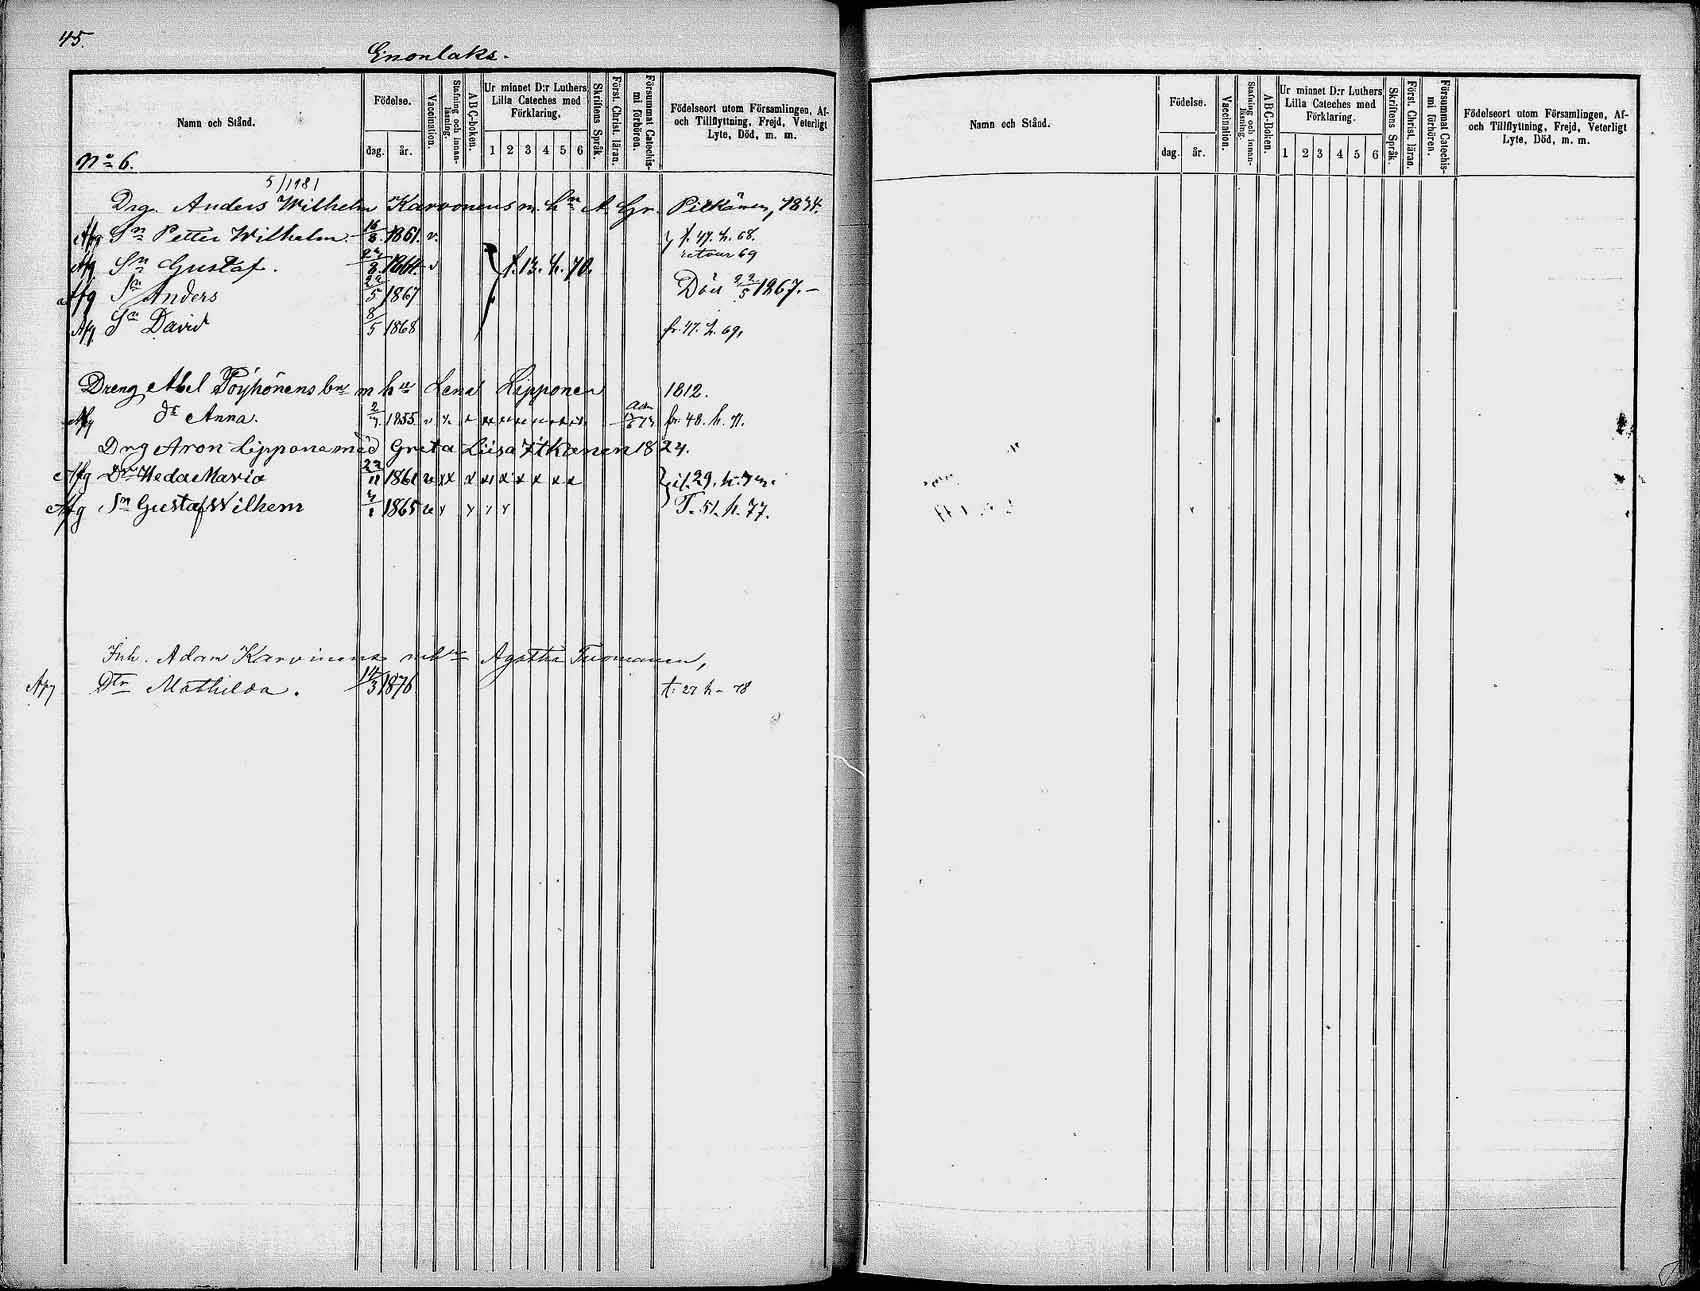 45.
Enonlaks.
Namn och Stånd.
Födelse.
dag. år.
Vaccination.
Stafning och innan-läsning.
ABC-boken.
Ur minnet D:r Luthers Lilla Cateches med Förklaring.
1 2 3 4 5 6
Skriftens Språk.
Först. Christ. läran.
Försummat Catechis-mi förhören.
Födelseort utom Församlingen, Af- och Tillflyttning, Frejd, Veterligt Lyte, Död, m. m.
No 6.
Drg. Anders Wilhelm Karvonens m. hu A. Gr. Pitkänen, 1834.
Afg Sn Petter Wilhelm. 16/8 1861. v. f. 47. h. 68.
retour 69
Afg. Sn Gustaf. 1864. v f. 13. h. 70.
Afg Sn Anders 22/5 1867 Död 1867.
Afg Sn David 8/5 1868 fr. 47. h. 69.
Dreng Abel Pöyhönens m hu Lena Lipponen 1812.
Afg dr Anna. 2/7 1855 v x x x x x x x x fr. 48. h. 71.
Drg Aron Lippone med Greta Liisa Itkonen 1824.
Afg Dr Heda Maria 22/11 1861 v x x x x x x x x x
Afg Sn Gustaf Wilhem 1865 v T. 51. h. 77.
Inh. Adam Karvinens m hu Agatha Tuomainen,
Afg Dtr Mathilda. 14/3 1876 t: 27 h - 78
Namn och Stånd.
Födelse.
dag. år.
Vaccination.
Stafning och innan-läsning.
ABC-boken.
Ur minnet D:r Luthers Lilla Cateches med Förklaring.
1 2 3 4 5 6
Skriftens Språk.
Först. Christ. läran.
Försummat Catechis-mi förhören.
Födelseort utom Församlingen, Af- och Tillflyttning, Frejd, Veterligt Lyte, Död, m. m.